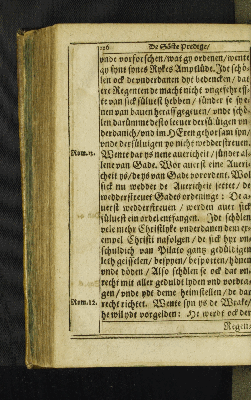 226 De Söste Predige/
vnde vorforschen/wat gy ordenen/wente
gy synt synes Rykes Amptlüde. Jdt schö-
len ock de vnderdanen dyt bedencken/dat
ere Regenten de macht nicht vngefehr efft
te van sick süluest hebben/sünder se sy e-
nen van bauen heraff gegeuen/vnde schö-
len darümme desto leuer der süluigen vn-
derdanich/vnd im HEren gehorsam syn/
vnde der süluigen yo nicht wedderstreuen.
Rom.13. Wente dar ys nene auericheit/sünder al-
lene van Gade. Wor auerst eine Aueri-
cheit ys/de ys van Gade vorordent. Wol
sick nu wedder de Auericheit settet/de
wedderstreuet Gades ordeninge: De a-
uerst wedderstreuen/werden auer sick
süluest ein ordel entfangen. Jdt schölen
vele mehr Christlyke vnderdanen dem ex-
empel Christi nafolgen/de sick hyr vn-
schuldich van Pilato gantz gedüldigen
leth geisselen/bespyen/bespotten/hönen
vnde döden/Also schölen se ock dat vn-
recht mit aller gedult lyden vnd vordra-
gen/vnde ydt deme heimstellen/de dar
Rom.12. recht richtet. Wente syn ys de Wrake/
he wil ydt vorgelden: He werdt ock der
Regen